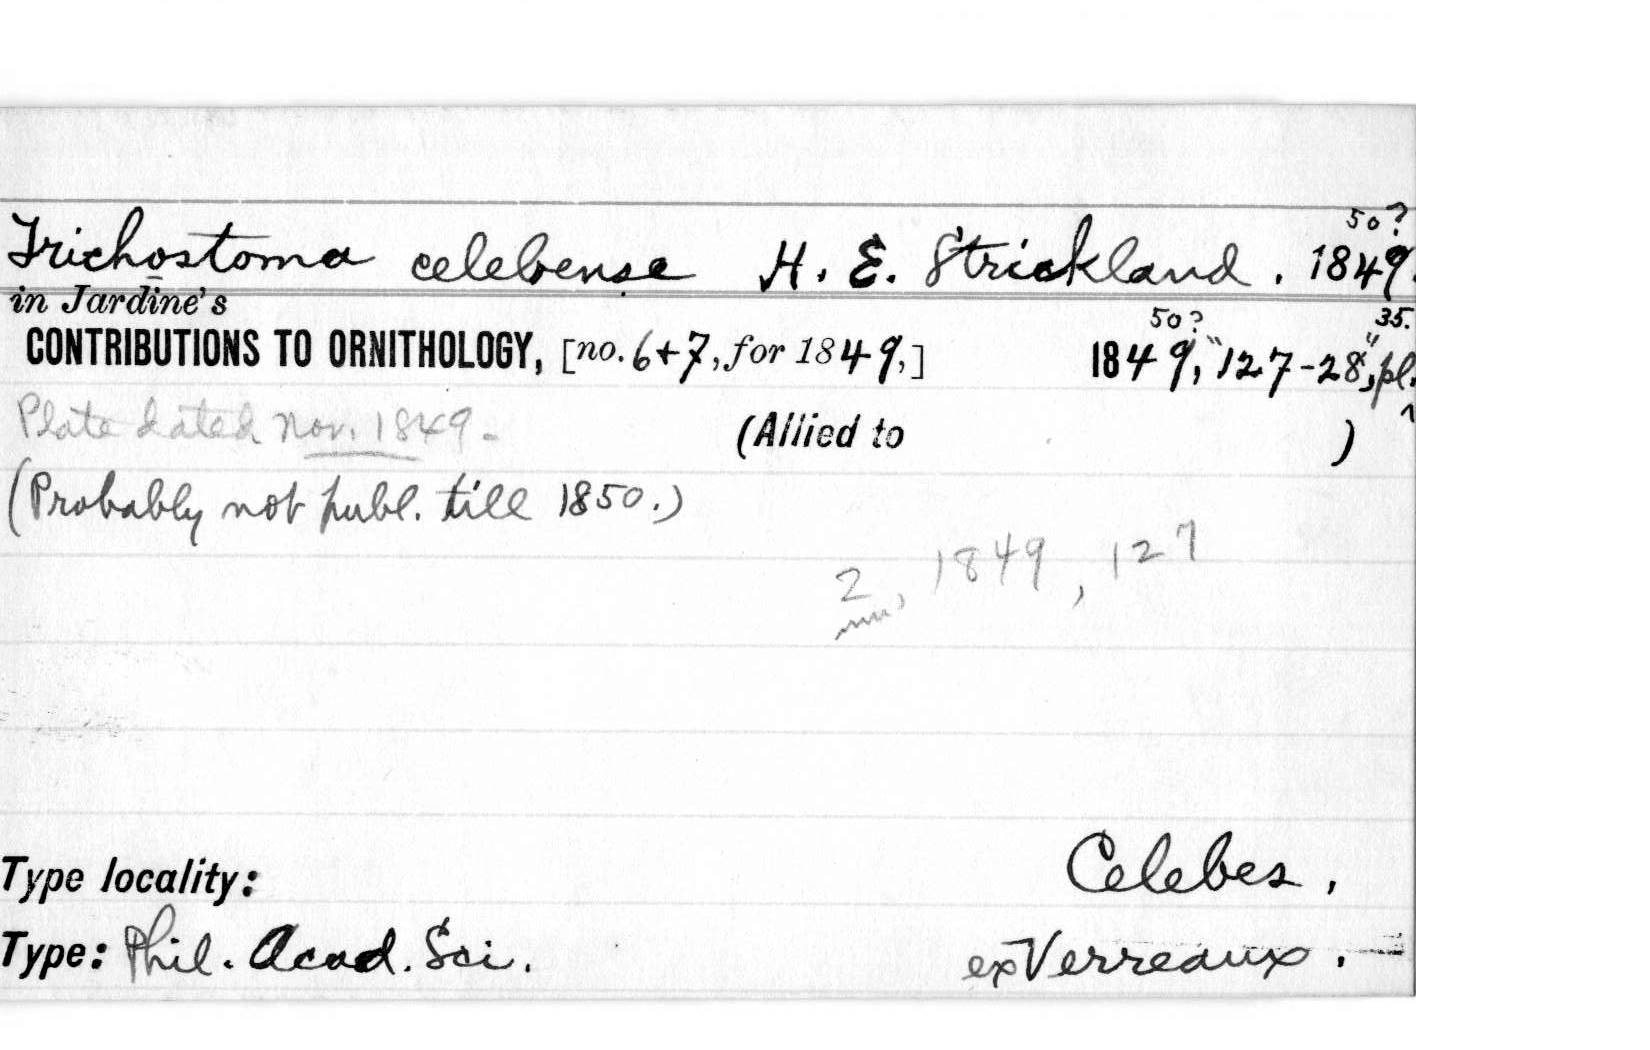 50?
Trichostoma celebense H. E. Strickland. 1849.
in Jardine's
50? 35.
CONTRIBUTIONS TO ORNITHOLOGY, [no. 6+7, for 1849,] 1849, "127-28", pl.
Plate dated Nov. 1849. (Allied to )
(Probably not publ. till 1850.)
2, 1849, 127
Type locality: Celebes.
Type: Phil. Acad. Sci. ex Verreaux.